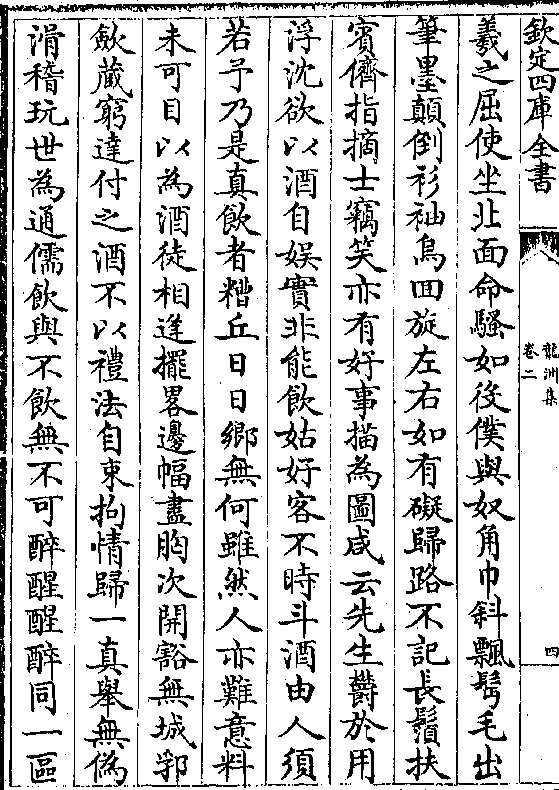 欽定四庫全書
龍洲集
卷二
四
羲之屈使坐北面命騷如後僕與奴角巾斜飄鬂毛出
筆墨顛倒衫袖烏回旋左右如有礙歸路不記長鬚扶
賓儕指摘士竊笑亦有好事描為圖咸云先生欝於用
浮沈欲以酒自娛實非能飲姑好客不時斗酒由人須
若予乃是真飲者糟丘日日鄉無何雖然人亦難意料
未可目以為酒徒相逢擺畧邊幅盡胸次開豁無城郛
歛蔵窮達付之酒不以禮法自束拘情歸一真舉無偽
滑稽玩世為通儒飲與不飲無不可醉醒醒醉同一區